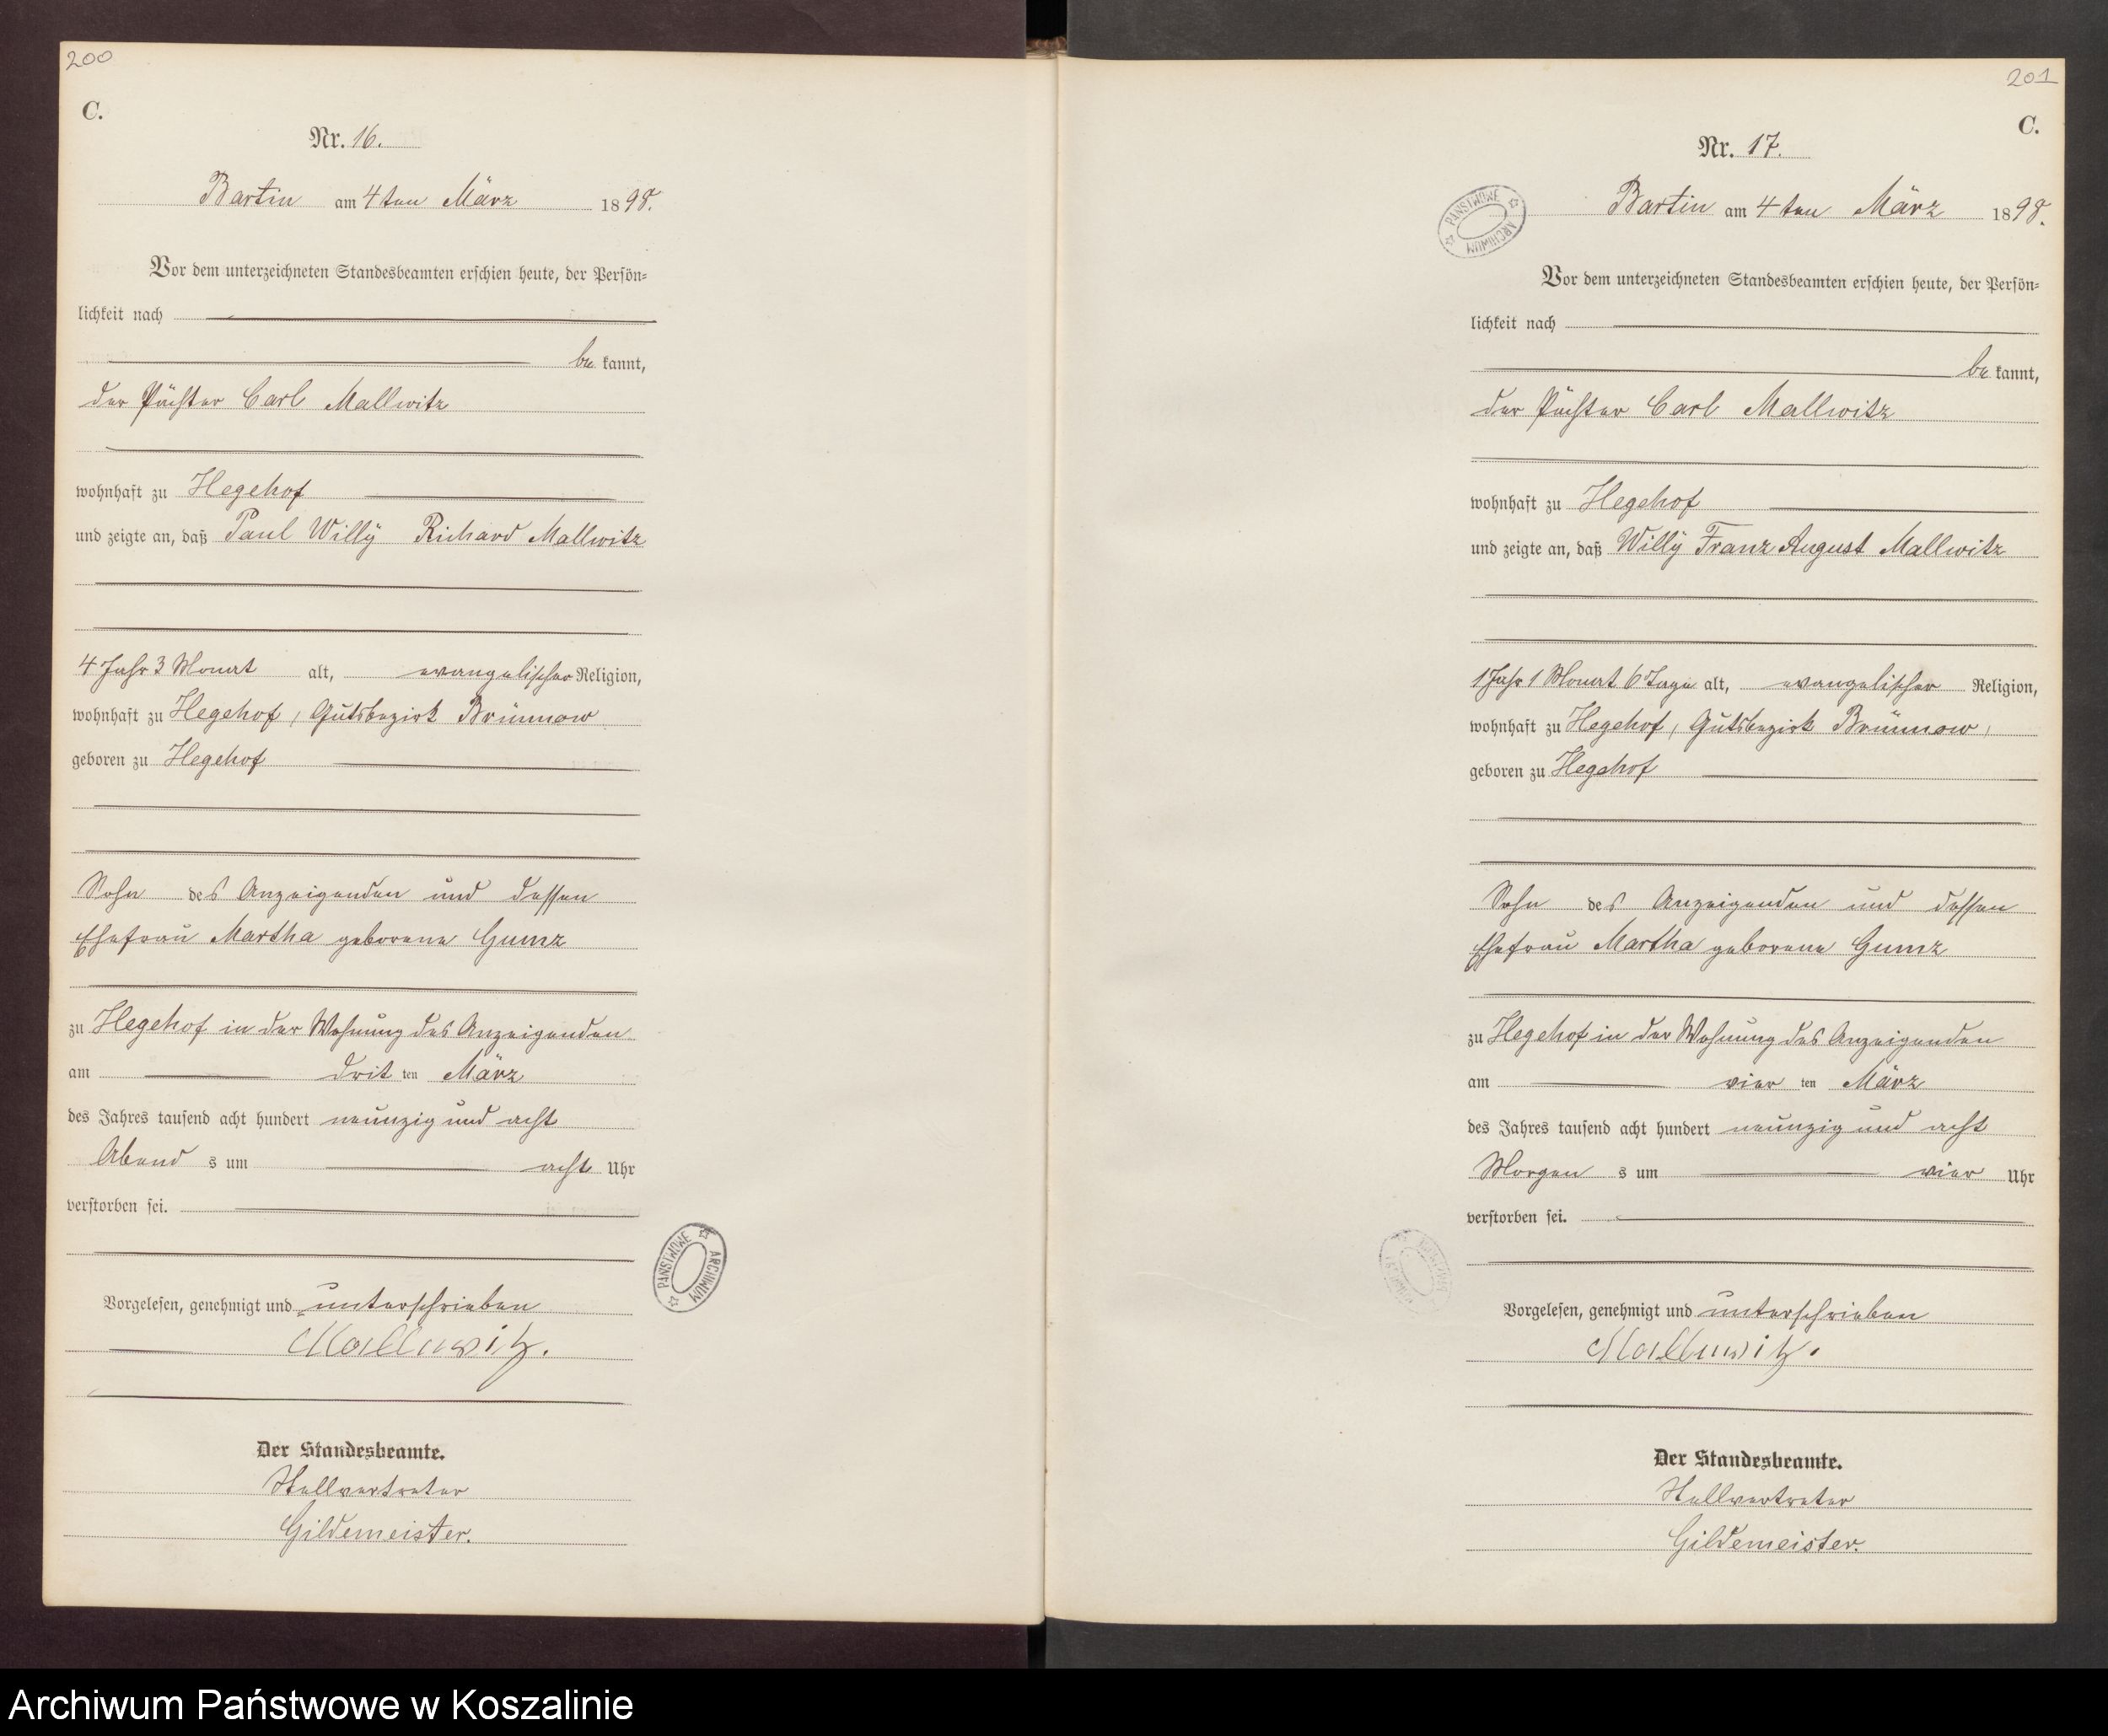 200
C.
Nr. 16.
Bartin am 4ten März 1898.
Vor dem unterzeichneten Standesbeamten erschien heute, der Persön-
lichkeit nach
be kannt,
der Pächter Carl Mallwitz
wohnhaft zu Hegehof
und zeigte an, daß Paul Willÿ Richard Mallwitz
4 Jahr 3 Monat alt, evangelischer Religion,
wohnhaft zu Hegehof, Gutsbezirk Brünnow
geboren zu Hegehof
Sohn des Anzeigenden und dessen
Ehefrau Martha geborene Gumz
zu Hegehof in der Wohnung des Anzeigenden
am drit ten März
des Jahres tausend acht hundert neunzig und acht
Abend s um acht Uhr
verstorben sei.
Vorgelesen, genehmigt und unterschrieben
Mallwitz.
Der Standesbeamte.
Stellvertreter
Gildemeister.
PAŃSTWOWE ARCHIWUM
201
C.
Nr. 17.
Bartin am 4ten März 1898.
PAŃSTWOWE ARCHIWUM
Vor dem unterzeichneten Standesbeamten erschien heute, der Persön-
lichkeit nach
be kannt,
der Pächter Carl Mallwitz
wohnhaft zu Hegehof
und zeigte an, daß Willÿ Franz August Mallwitz
1 Jahr 1 Monat 6 Tage alt, evangelischer Religion,
wohnhaft zu Hegehof, Gutsbezirk Brünnow,
geboren zu Hegehof
Sohn des Anzeigenden und dessen
Ehefrau Martha geborene Gumz
zu Hegehof in der Wohnung des Anzeigenden
am vier ten März
des Jahres tausend acht hundert neunzig und acht
Morgen s um vier Uhr
verstorben sei.
Vorgelesen, genehmigt und unterschrieben
Mallwitz.
Der Standesbeamte.
Stellvertreter
Gildemeister.
Archiwum Państwowe w Koszalinie